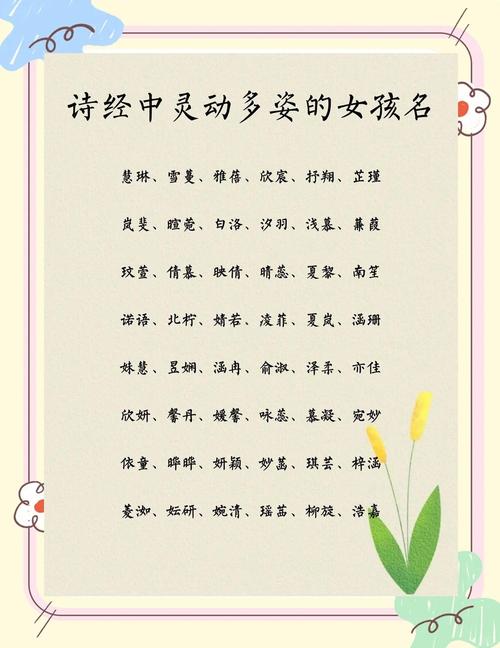 诗经中灵动多姿的女孩名
慧琳、雪蔓、雅蓓、欣宸、抒翔、芷瑾
岚斐、暄菀、白洛、汐羽、浅慕、蒹葭
玟萱、倩慕、映倩、晴蕊、夏黎、南笙
诺语、北柠、婧若、凌菲、夏岚、涵珊
姝慧、昱娴、涵冉、俞淑、泽柔、亦佳
欣妍、馨丹、媛馨、咏蕊、慕凝、宛妙
依童、晔晔、妍颖、妙菡、琪芸、梓涵
菱洳、妘研、婉清、瑶茜、柳旋、浩嘉